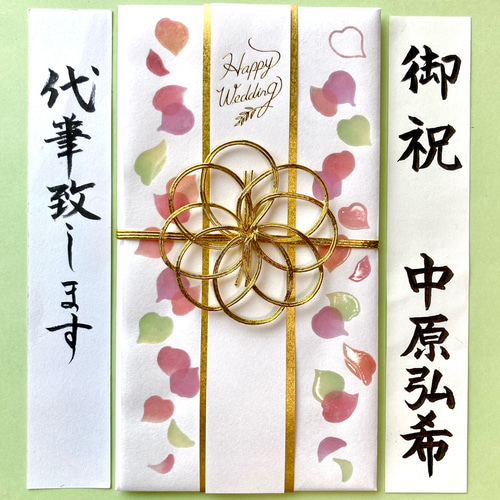 代筆致します
Happy
Wedding
御祝
中原弘希